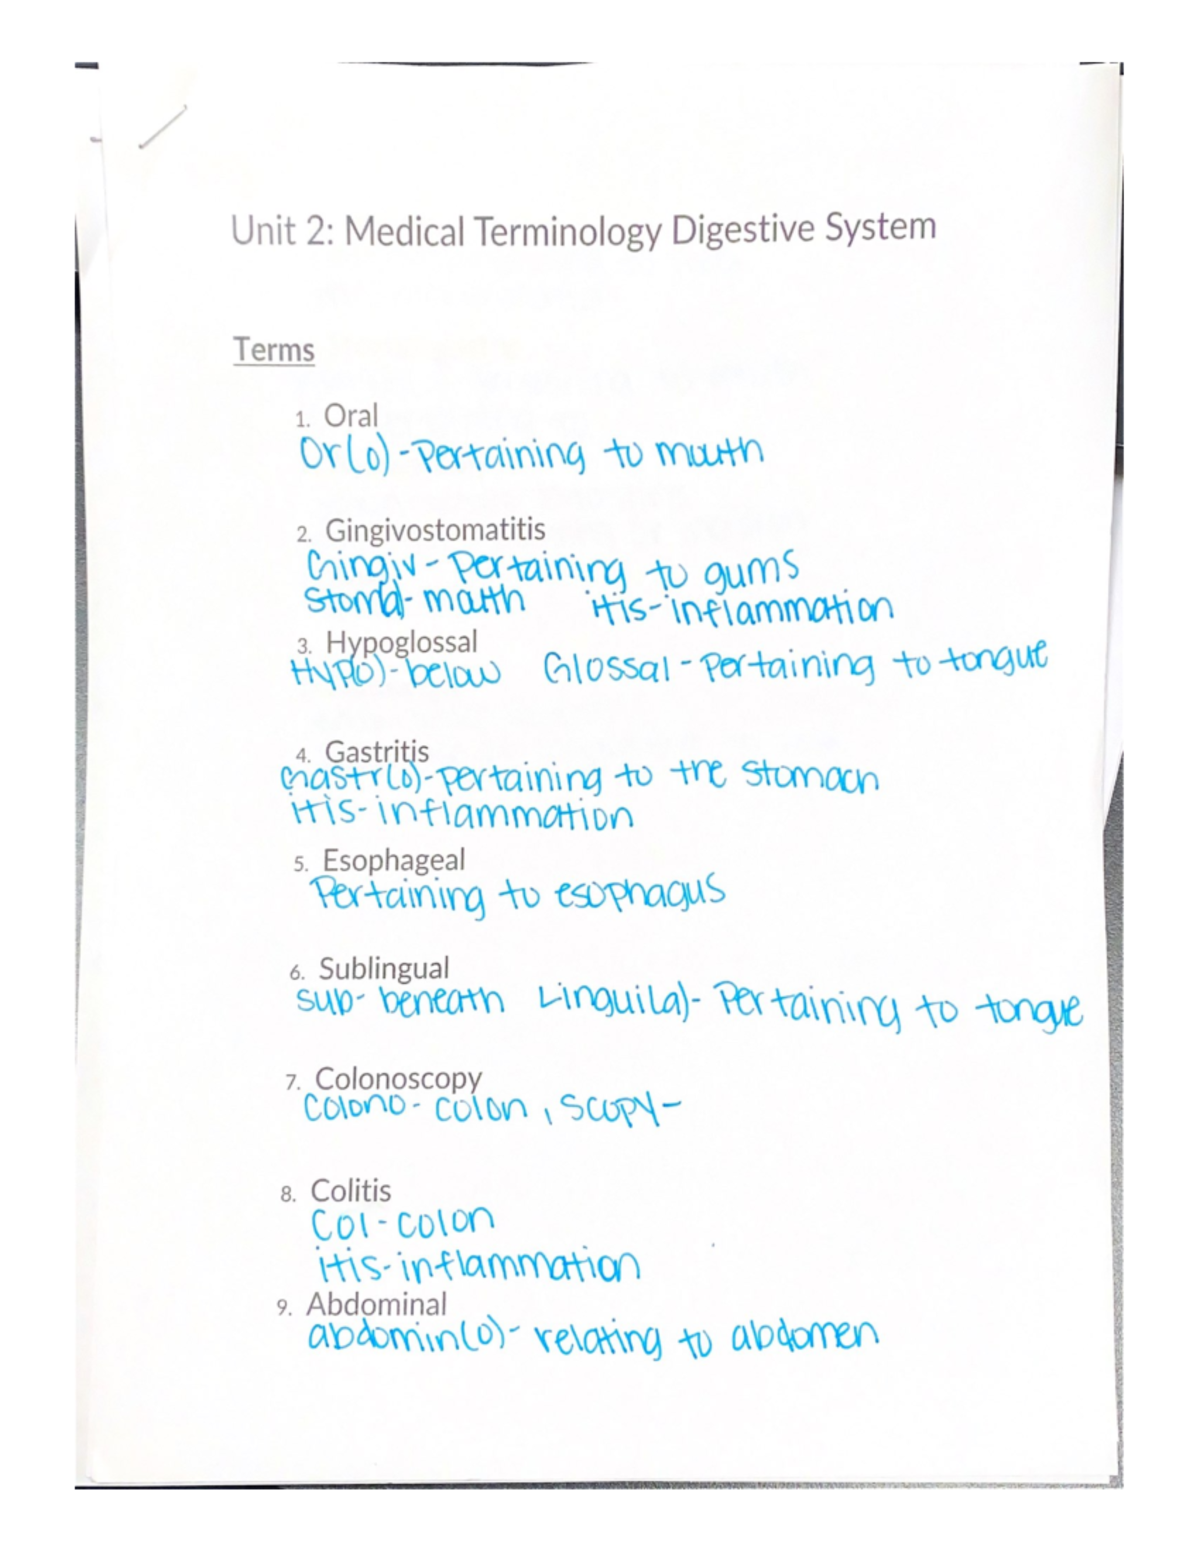 Unit 2: Medical Terminology Digestive System
Terms
1. Oral
Or(o)-Pertaining to mouth
2. Gingivostomatitis
Gingiv- Pertaining to gums
Stoma- mouth itis-inflammation
3. Hypoglossal
Hyp(o)-below Glossal-Pertaining to tongue
4. Gastritis
Gastr(o)-pertaining to the stomach
itis-inflammation
5. Esophageal
Pertaining to esophagus
6. Sublingual
Sub-beneath Lingu(la)-Pertaining to tongue
7. Colonoscopy
Colono-colon, Scopy-
8. Colitis
Col-colon
itis-inflammation
9. Abdominal
abdomin(o)-relating to abdomen